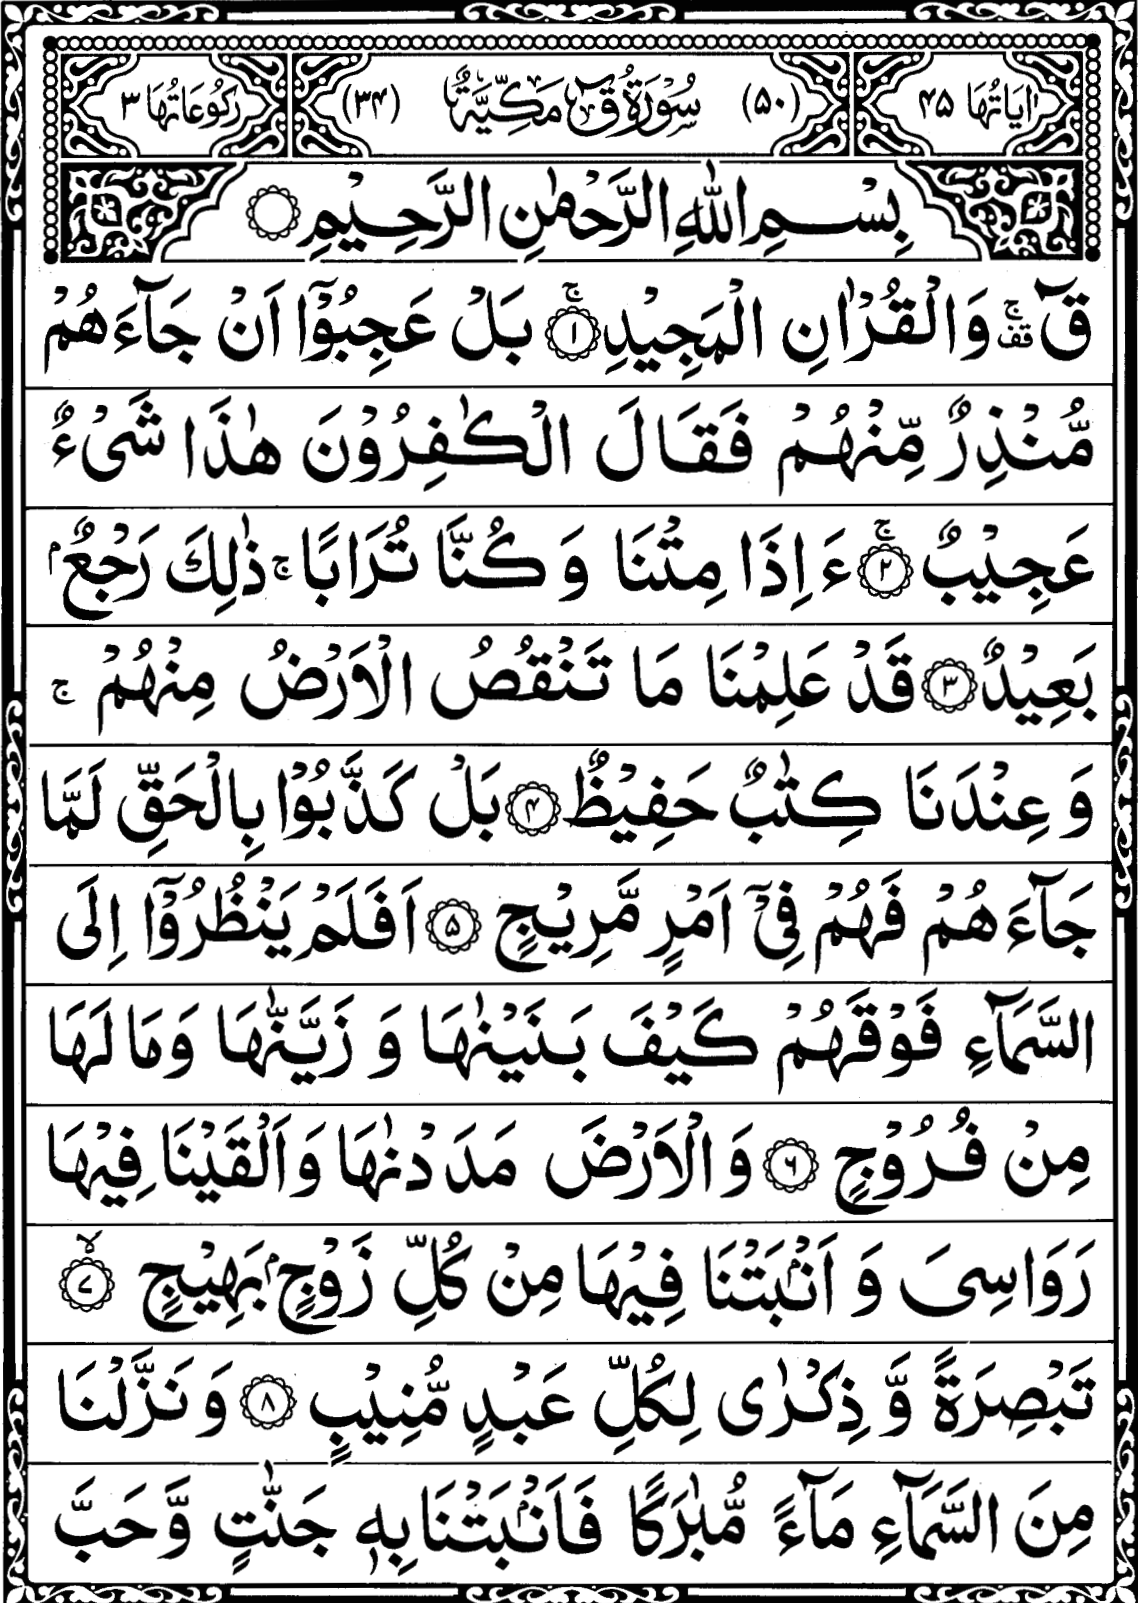 اٰيَاتُهَا ۴۵ (۵۰) سُوْرَةُ قٓ مَكِّيَّةٌ (۳۴) رُكُوْعَاتُهَا ۳
بِسْمِ اللّٰهِ الرَّحْمٰنِ الرَّحِيْمِ ○
قٓ ۚ قف وَالْقُرْاٰنِ الْمَجِيْدِ ۚ﴿۱﴾ بَلْ عَجِبُوْٓا اَنْ جَآءَهُمْ
مُّنْذِرٌ مِّنْهُمْ فَقَالَ الْكٰفِرُوْنَ هٰذَا شَیْءٌ
عَجِيْبٌ ۚ﴿۲﴾ ءَاِذَا مِتْنَا وَ كُنَّا تُرَابًا ۚ ذٰلِكَ رَجْعٌۢ
بَعِيْدٌ ﴿۳﴾ قَدْ عَلِمْنَا مَا تَنْقُصُ الْاَرْضُ مِنْهُمْ ۚ
وَ عِنْدَنَا كِتٰبٌ حَفِيْظٌ ﴿۴﴾ بَلْ كَذَّبُوْا بِالْحَقِّ لَمَّا
جَآءَهُمْ فَهُمْ فِیْۤ اَمْرٍ مَّرِيْجٍ ﴿۵﴾ اَفَلَمْ يَنْظُرُوْٓا اِلَی
السَّمَآءِ فَوْقَهُمْ كَيْفَ بَنَيْنٰهَا وَ زَيَّنّٰهَا وَمَا لَهَا
مِنْ فُرُوْجٍ ﴿۶﴾ وَالْاَرْضَ مَدَدْنٰهَا وَاَلْقَيْنَا فِيْهَا
رَوَاسِیَ وَ اَنْۢبَتْنَا فِيْهَا مِنْ كُلِّ زَوْجٍۭ بَهِيْجٍ ۙ﴿۷﴾
تَبْصِرَةً وَّ ذِكْرٰی لِكُلِّ عَبْدٍ مُّنِيْبٍ ﴿۸﴾ وَ نَزَّلْنَا
مِنَ السَّمَآءِ مَآءً مُّبٰرَكًا فَاَنْۢبَتْنَا بِهٖ جَنّٰتٍ وَّحَبَّ